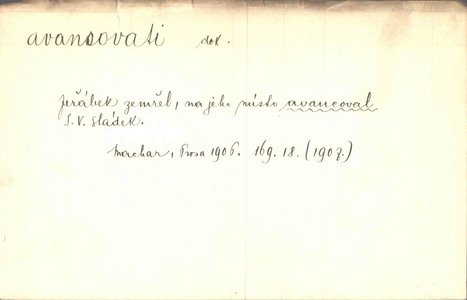 avansovati dok.
Jeřábek zemřel, na jeho místo avancoval
J. V. Sládek.
Machar, Prosa 1906. 169. 18. (1907.)